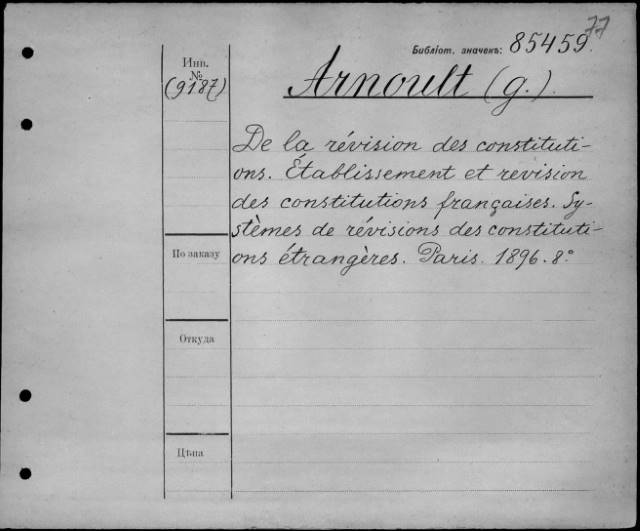 77
Библіот. значекъ: 85459.
Инв.
№
(9187)
Arnoult (G.).
De la révision des constituti-
ons. Établissement et revision
des constitutions françaises. Sy-
stèmes de révisions des constituti-
ons étrangères. Paris. 1896. 8°
По заказу
Откуда
Цѣна